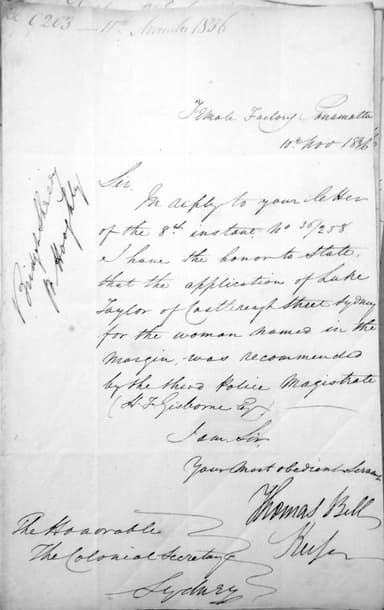 6203 — 11th November 1836
Female Factory Parramatta
10th Nov 1836
Sir
In reply to your letter
of the 8th instant No 36/258
I have the honor to State,
that the application of Luke
Taylor of Castlereagh Street Sydney
for the woman named in the
margin, was recommended
by the third Police Magistrate
(H. F. Gisborne Esq).
I am Sir,
Your Most obedient Servant
Thomas Bell
Keeper
Hooghly
The Honorable
The Colonial Secretary
Sydney